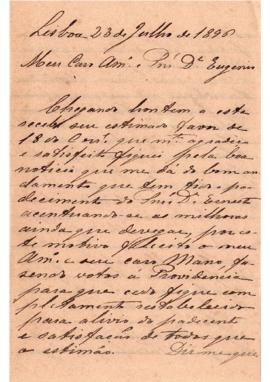 Lisboa 23 de Julho de 1896
Meu Caro Am.º e Snr. D.r Eugenio
Chegando hontem a esta
recebi seu estimado favor de
18 do corr. que m.to agradeço
e satisfeito fiquei pela boa
noticia que me dá do bom an-
damento que tem tido o pa-
decimento do Snr. D.r Ernesto
acentuando-se as melhoras
ainda que devagar, por es-
te motivo felicito o meu
Am.º e seu caro Mano, fa-
sendo votos á Providencia
para que cedo fique com-
pletamente restabelecido
para alivio do padecente
e satisfação de todos que
o estimão.